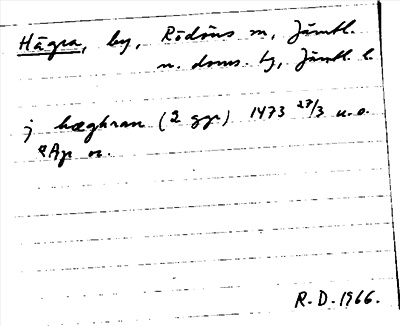 Hägra, by, Rödöns sn, Jämtl.
n. doms. tg, Jämtl. l.
j hæghran (2 ggr) 1473 27/3 u.o.
RAp n.
R.D. 1966.